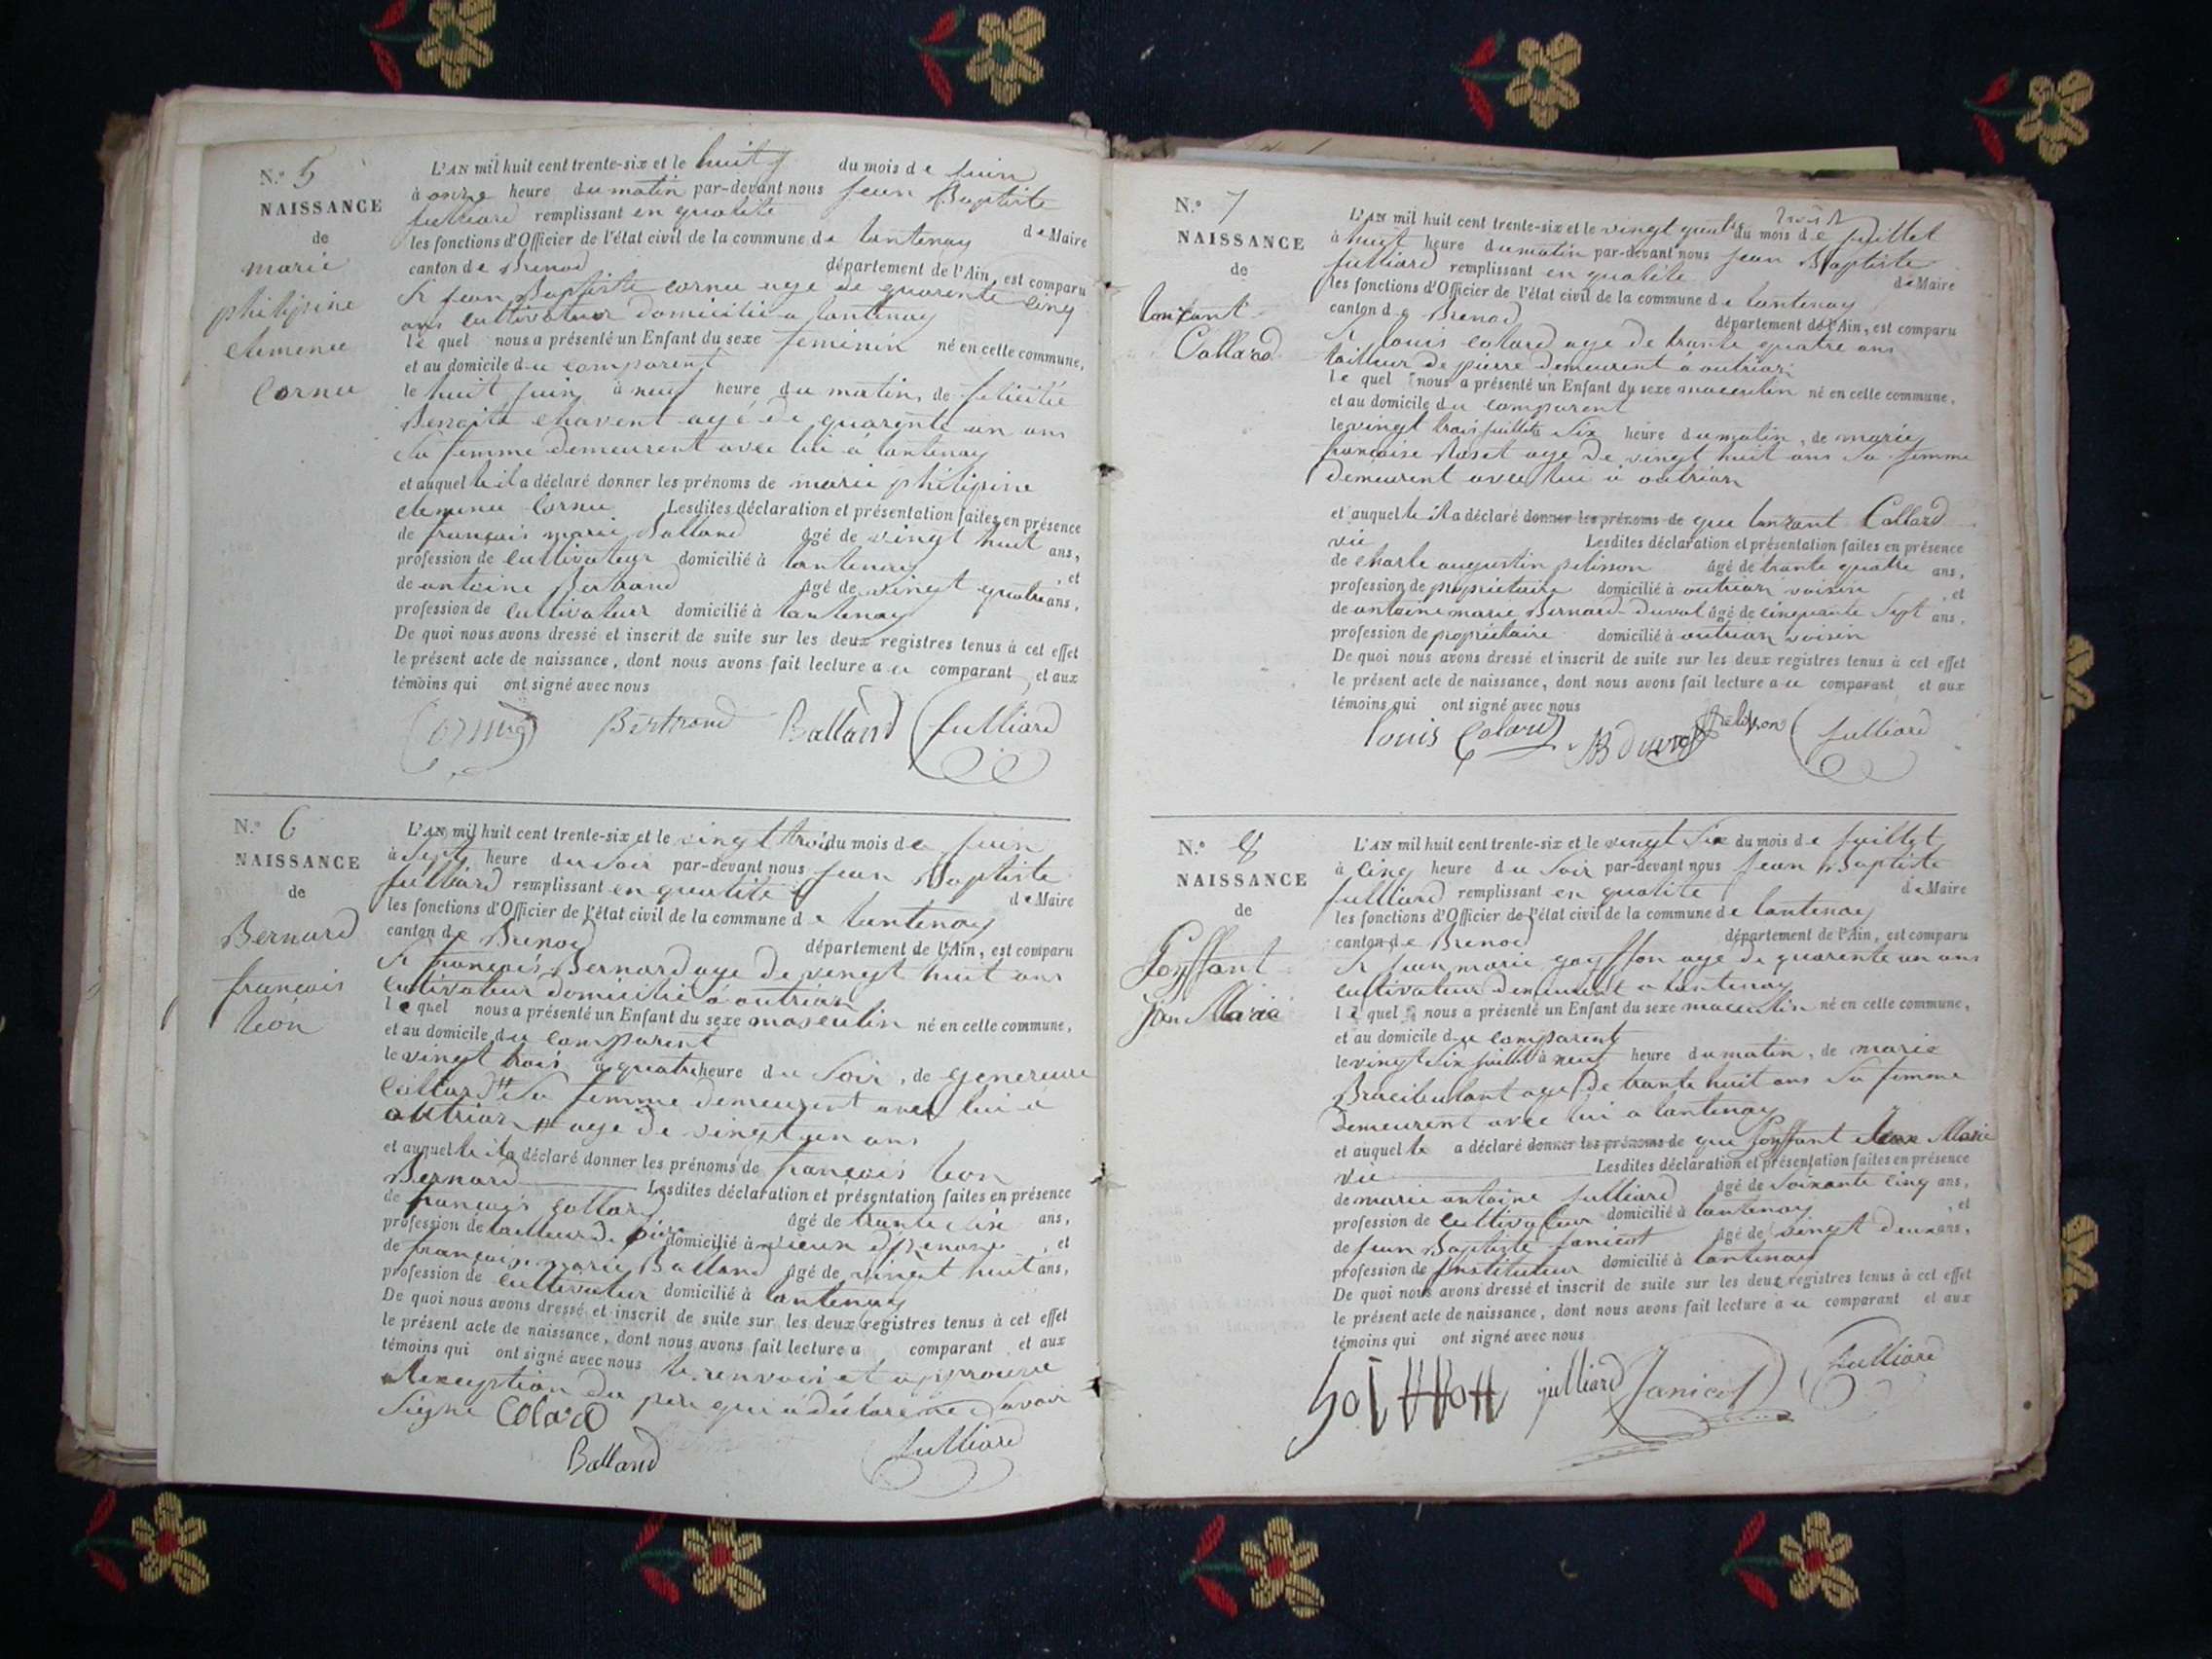 N.º 5
NAISSANCE
de
marie
philipine
clemence
Cornu
L'AN mil huit cent trente-six et le huit du mois de Juin
à onze heure du matin par-devant nous Jean Baptiste
Julliard remplissant en qualité de Maire
les fonctions d'Officier de l'état civil de la commune de Lantenay
canton de Brenod département de l'Ain, est comparu
Sr Jean Baptiste cornu age de quarente cinq
ans cultivateur domicilié a lantenay
le quel nous a présenté un Enfant du sexe feminin né en cette commune,
et au domicile du comparent
le huit Juin à neuf heure du matin, de félicitée
Benoite chavent agé de quarente un ans
sa femme demeurent avec lui à lantenay
et auquel le il a déclaré donner les prénoms de marie philipine
clemence Cornu Lesdites déclaration et présentation faites en présence
de françois marie Balland âgé de vingt huit ans,
profession de cultivateur domicilié à lantenay, et
de antoine Bertrand âgé de vingt quatre ans,
profession de cultivateur domicilié à lantenay
De quoi nous avons dressé et inscrit de suite sur les deux registres tenus à cet effet
le présent acte de naissance, dont nous avons fait lecture au comparant et aux
témoins qui ont signé avec nous
Cornu Bertrand Balland Julliard
N.º 6
NAISSANCE
de
Bernard
françois
léon
L'AN mil huit cent trente-six et le vingt trois du mois de Juin
à Sept heure du Soir par-devant nous Jean Baptiste
Julliard remplissant en qualité de Maire
les fonctions d'Officier de l'état civil de la commune de lantenay
canton de Brenod département de l'Ain, est comparu
Sr françois Bernard age de vingt huit ans
cultivateur domicilié à outriaz
le quel nous a présenté un Enfant du sexe masculin né en cette commune,
et au domicile du comparent
le vingt trois à quatre heure du Soir, de genereuse
Collard # Sa femme demeurent avec lui a
outriaz # age de vingt un ans
et auquel le il a déclaré donner les prénoms de françois leon
Bernard Lesdites déclaration et présentation faites en présence
de françois Collard âgé de trante six ans,
profession de tailleur de pierre domicilié à vieux d'izenave, et
de françois marie Balland âgé de vingt huit ans,
profession de cultivateur domicilié à lantenay
De quoi nous avons dressé et inscrit de suite sur les deux registres tenus à cet effet
le présent acte de naissance, dont nous avons fait lecture a comparant et aux
témoins qui ont signé avec nous le renvoi est approuvé
a l'exception du pere qui a déclaré ne savoir
Signé Colard
Balland Julliard
N.º 7
NAISSANCE
de
Constant
Collard
L'AN mil huit cent trente-six et le vingt du mois de Juillet
à huit heure du matin par-devant nous Jean Baptiste
Julliard remplissant en qualité de Maire
les fonctions d'Officier de l'état civil de la commune de lantenay
canton de Brenod département de l'Ain, est comparu
Sr louis colard age de trante quatre ans
tailleur de pierre demeurent à outriaz
le quel nous a présenté un Enfant du sexe masculin né en cette commune,
et au domicile du comparent
le vingt trois juillet à Six heure du matin, de marie
françoise Roset age de vingt huit ans sa femme
demeurent avec lui à outriaz
et auquel le il a déclaré donner les prénoms de que Collard
vie Lesdites déclaration et présentation faites en présence
de charle augustin pelisson âgé de trante quatre ans,
profession de propriétaire domicilié à outriaz voisin, et
de antoine marie Bernard-duval âgé de cinquante Sept ans,
profession de propriétaire domicilié à outriaz voisin
De quoi nous avons dressé et inscrit de suite sur les deux registres tenus à cet effet
le présent acte de naissance, dont nous avons fait lecture au comparant et aux
témoins qui ont signé avec nous
louis Colard Pelisson Julliard
N.º 8
NAISSANCE
de
Goyffont
Jean Marie
L'AN mil huit cent trente-six et le vingt Six du mois de Juillet
à cinq heure du Soir par-devant nous Jean Baptiste
Julliard remplissant en qualité de Maire
les fonctions d'Officier de l'état civil de la commune de lantenay
canton de Brenod département de l'Ain, est comparu
Sr Jean marie goyffon age de quarente un ans
cultivateur demeurent a lantenay
le quel nous a présenté un Enfant du sexe masculin né en cette commune,
et au domicile du comparent
le vingt Six juillet à neuf heure du matin, de marie
age de trante huit ans sa femme
demeurent avec lui a lantenay
et auquel le a déclaré donner les prénoms de que Goyffont Jean Marie
vie Lesdites déclaration et présentation faites en présence
de marie antoine Julliard âgé de Soixante cinq ans,
profession de cultivateur domicilié à lantenay, et
de Jean Baptiste Janicot âgé de vingt deux ans,
profession de Instituteur domicilié à lantenay
De quoi nous avons dressé et inscrit de suite sur les deux registres tenus à cet effet
le présent acte de naissance, dont nous avons fait lecture au comparant et aux
témoins qui ont signé avec nous
julliard Janicot Julliard